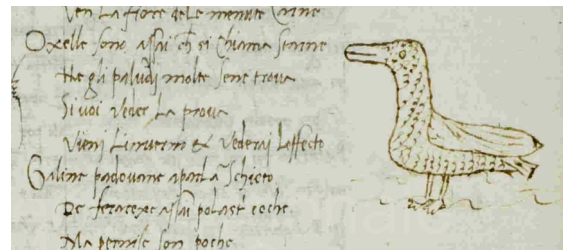 Ven La fiore dele menute Canne
Oxelle sono assai ch si Chiama Starne
Ne gli paludi molte sene trova
Si voi veder La prova
Vieni Linverno & Vederai Leffecto
Galine padouane aparla Schieto
De ferarexe assai polast
Ma pocho